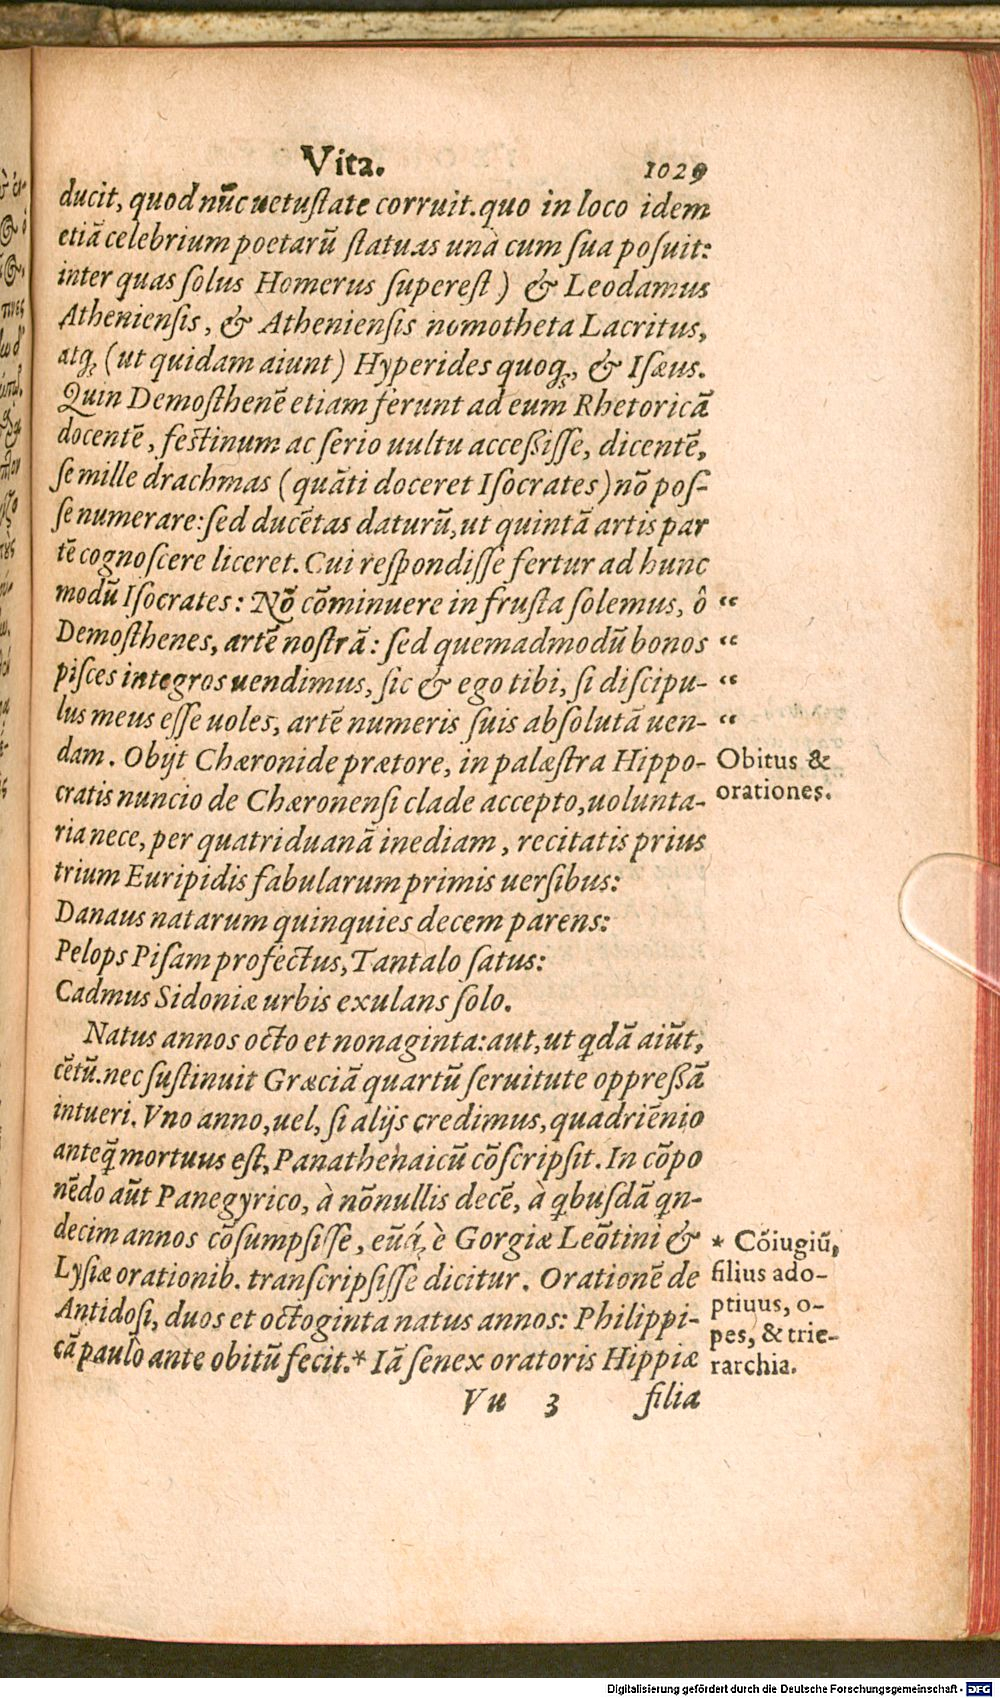 Vita. 1029
ducit, quod nũc uetuſtate corruit. quo in loco idem
etiã celebrium poetarũ ſtatuas unà cum ſua poſuit:
inter quas ſolus Homerus ſupereſt) & Leodamus
Athenienſis, & Athenienſis nomotheta Lacritus,
atq; (ut quidam aiunt) Hyperides quoq;, & Iſæus.
Quin Demoſthenẽ etiam ferunt ad eum Rhetoricã
docentẽ, feſtinum ac ſerio uultu acceßiſſe, dicentẽ,
ſe mille drachmas (quãti doceret Iſocrates) nõ poſ-
ſe numerare: ſed ducẽtas daturũ, ut quintã artis par
tẽ cognoſcere liceret. Cui reſpondiſſe fertur ad hunc
modũ Iſocrates: Nõ cõminuere in fruſta ſolemus, ô “
Demoſthenes, artẽ noſtrã: ſed quemadmodũ bonos “
piſces integros uendimus, ſic & ego tibi, ſi diſcipu- “
lus meus eſſe uoles, artẽ numeris ſuis abſolutã uen- “
dam. Obijt Chæronide prætore, in palæſtra Hippo-
Obitus &
cratis nuncio de Chæronenſi clade accepto, uolunta-
orationes.
ria nece, per quatriduanã inediam, recitatis prius
trium Euripidis fabularum primis uerſibus:
Danaus natarum quinquies decem parens:
Pelops Piſam profectus, Tantalo ſatus:
Cadmus Sidoniæ urbis exulans ſolo.
Natus annos octo et nonaginta: aut, ut qdã aiũt,
cẽtũ. nec ſuſtinuit Græciã quartũ ſeruitute oppreßã
intueri. Vno anno, uel, ſi alijs credimus, quadriẽnio
anteq̃ mortuus eſt, Panathenaicũ cõſcripſit. In cõpo
nẽdo aũt Panegyrico, à nõnullis decẽ, à qbuſdã qn-
decim annos cõſumpſiſſe, eũq́; è Gorgiæ Leõtini &
Lyſiæ orationib. tranſcripſiſſe dicitur. Orationẽ de
Antidoſi, duos et octoginta natus annos: Philippi-
cã paulo ante obitũ fecit.* Iã ſenex oratoris Hippiæ
* Cõiugiũ,
filius ado-
ptiuus, o-
pes, & trie-
rarchia.
Vu 3 filia
Digitalisierung gefördert durch die Deutsche Forschungsgemeinschaft - DFG